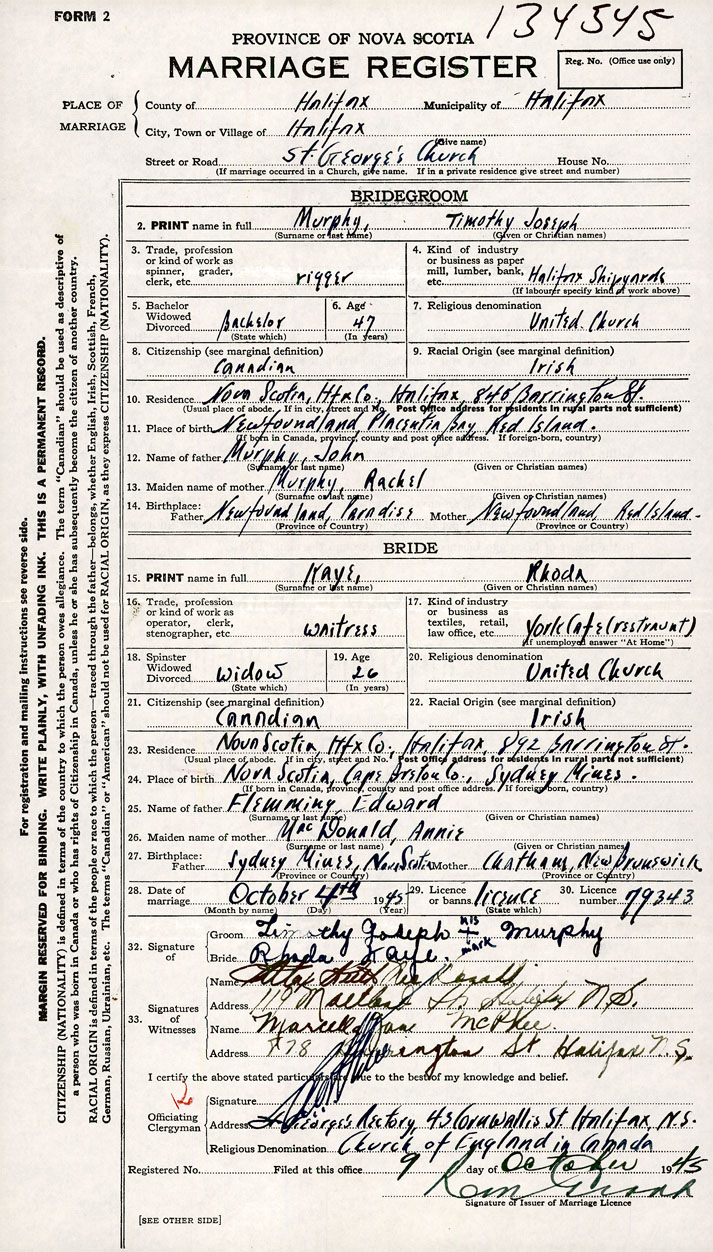 FORM 2
134545
PROVINCE OF NOVA SCOTIA
MARRIAGE REGISTER
Reg. No. (Office use only)
PLACE OF MARRIAGE
County of Halifax Municipality of Halifax
City, Town or Village of Halifax
(Give name)
Street or Road St. George's Church House No.
(If marriage occurred in a Church, give name. If in a private residence give street and number)
BRIDEGROOM
2. PRINT name in full Murphy, Timothy Joseph
(Surname or last name) (Given or Christian names)
3. Trade, profession or kind of work as spinner, grader, clerk, etc. rigger
4. Kind of industry or business as paper mill, lumber, bank, etc. Halifax Shipyards
(If labourer specify kind of work above)
5. Bachelor Widowed Divorced Bachelor
(State which)
6. Age 47
(In years)
7. Religious denomination United Church
8. Citizenship (see marginal definition) Canadian
9. Racial Origin (see marginal definition) Irish
10. Residence Nova Scotia, Hfx Co., Halifax, 848 Barrington St.
(Usual place of abode. If in city, street and No. Post Office address for residents in rural parts not sufficient)
11. Place of birth Newfoundland, Placentia Bay, Red Island.
(If born in Canada, province, county and post office address. If foreign-born, country)
12. Name of father Murphy, John
(Surname or last name) (Given or Christian names)
13. Maiden name of mother Murphy, Rachel
(Surname or last name) (Given or Christian names)
14. Birthplace: Father Newfoundland, Paradise Mother Newfoundland, Red Island
(Province of Country) (Province or Country)
BRIDE
15. PRINT name in full Kaye, Rhoda
(Surname or last name) (Given or Christian names)
16. Trade, profession or kind of work as operator, clerk, stenographer, etc. waitress
17. Kind of industry or business as textiles, retail, law office, etc. York Cafe (restraunt)
(If unemployed answer "At Home")
18. Spinster Widowed Divorced widow
(State which)
19. Age 26
(In years)
20. Religious denomination United Church
21. Citizenship (see marginal definition) Canadian
22. Racial Origin (see marginal definition) Irish
23. Residence Nova Scotia, Hfx Co., Halifax, 892 Barrington St.
(Usual place of abode. If in city, street and No. Post Office address for residents in rural parts not sufficient)
24. Place of birth Nova Scotia, Cape Breton Co., Sydney Mines.
(If born in Canada, province, county and post office address. If foreign born, country)
25. Name of father Flemming, Edward
(Surname or last name) (Given or Christian names)
26. Maiden name of mother MacDonald, Annie
(Surname or last name) (Given or Christian names)
27. Birthplace: Father Sydney Mines, Nova Scotia Mother Chatham, New Brunswick
(Province or Country) (Province or Country)
28. Date of marriage October 4th 1945
(Month by name) (Day) (Year)
29. Licence or banns licence
(State which)
30. Licence number 79343
32. Signature of
Groom Timothy Joseph his + mark Murphy
Bride Rhoda Kaye.
33. Signatures of Witnesses
Name
Address Maitland St Halifax N.S.
Name Marcella Jane McPhee.
Address St. Halifax N.S.
I certify the above stated particulars are true to the best of my knowledge and belief.
Officiating Clergyman
Signature
Address St George's Rectory, 43 Cornwallis St. Halifax, N.S.
Religious Denomination Church of England in Canada
Registered No. Filed at this office 9 day of October 1945
Signature of Issuer of Marriage Licence
[SEE OTHER SIDE]
For registration and mailing instructions see reverse side.
MARGIN RESERVED FOR BINDING. WRITE PLAINLY, WITH UNFADING INK. THIS IS A PERMANENT RECORD.
CITIZENSHIP (NATIONALITY) is defined in terms of the country to which the person owes allegiance. The term "Canadian" should be used as descriptive of
a person who was born in Canada or who has rights of Citizenship in Canada, unless he or she has subsequently become the citizen of another country.
RACIAL ORIGIN is defined in terms of the people or race to which the person—traced through the father—belongs, whether English, Irish, Scottish, French,
German, Russian, Ukrainian, etc. The terms "Canadian" or "American" should not be used for RACIAL ORIGIN, as they express CITIZENSHIP (NATIONALITY).